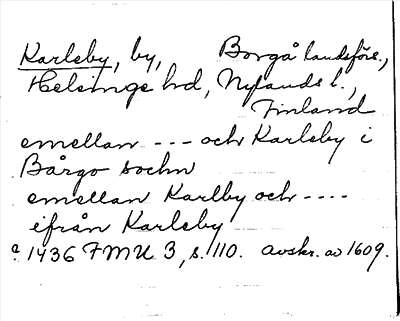 Karleby, by, Borgå landsförs.,
Helsinge hd, Nylands l.,
Finland
emellan --- och Karleby i
Bårgo sochn
emellan Karlby och ----
ifrån Karleby
a. 1436 FMU 3, s. 110. avskr. av 1609.